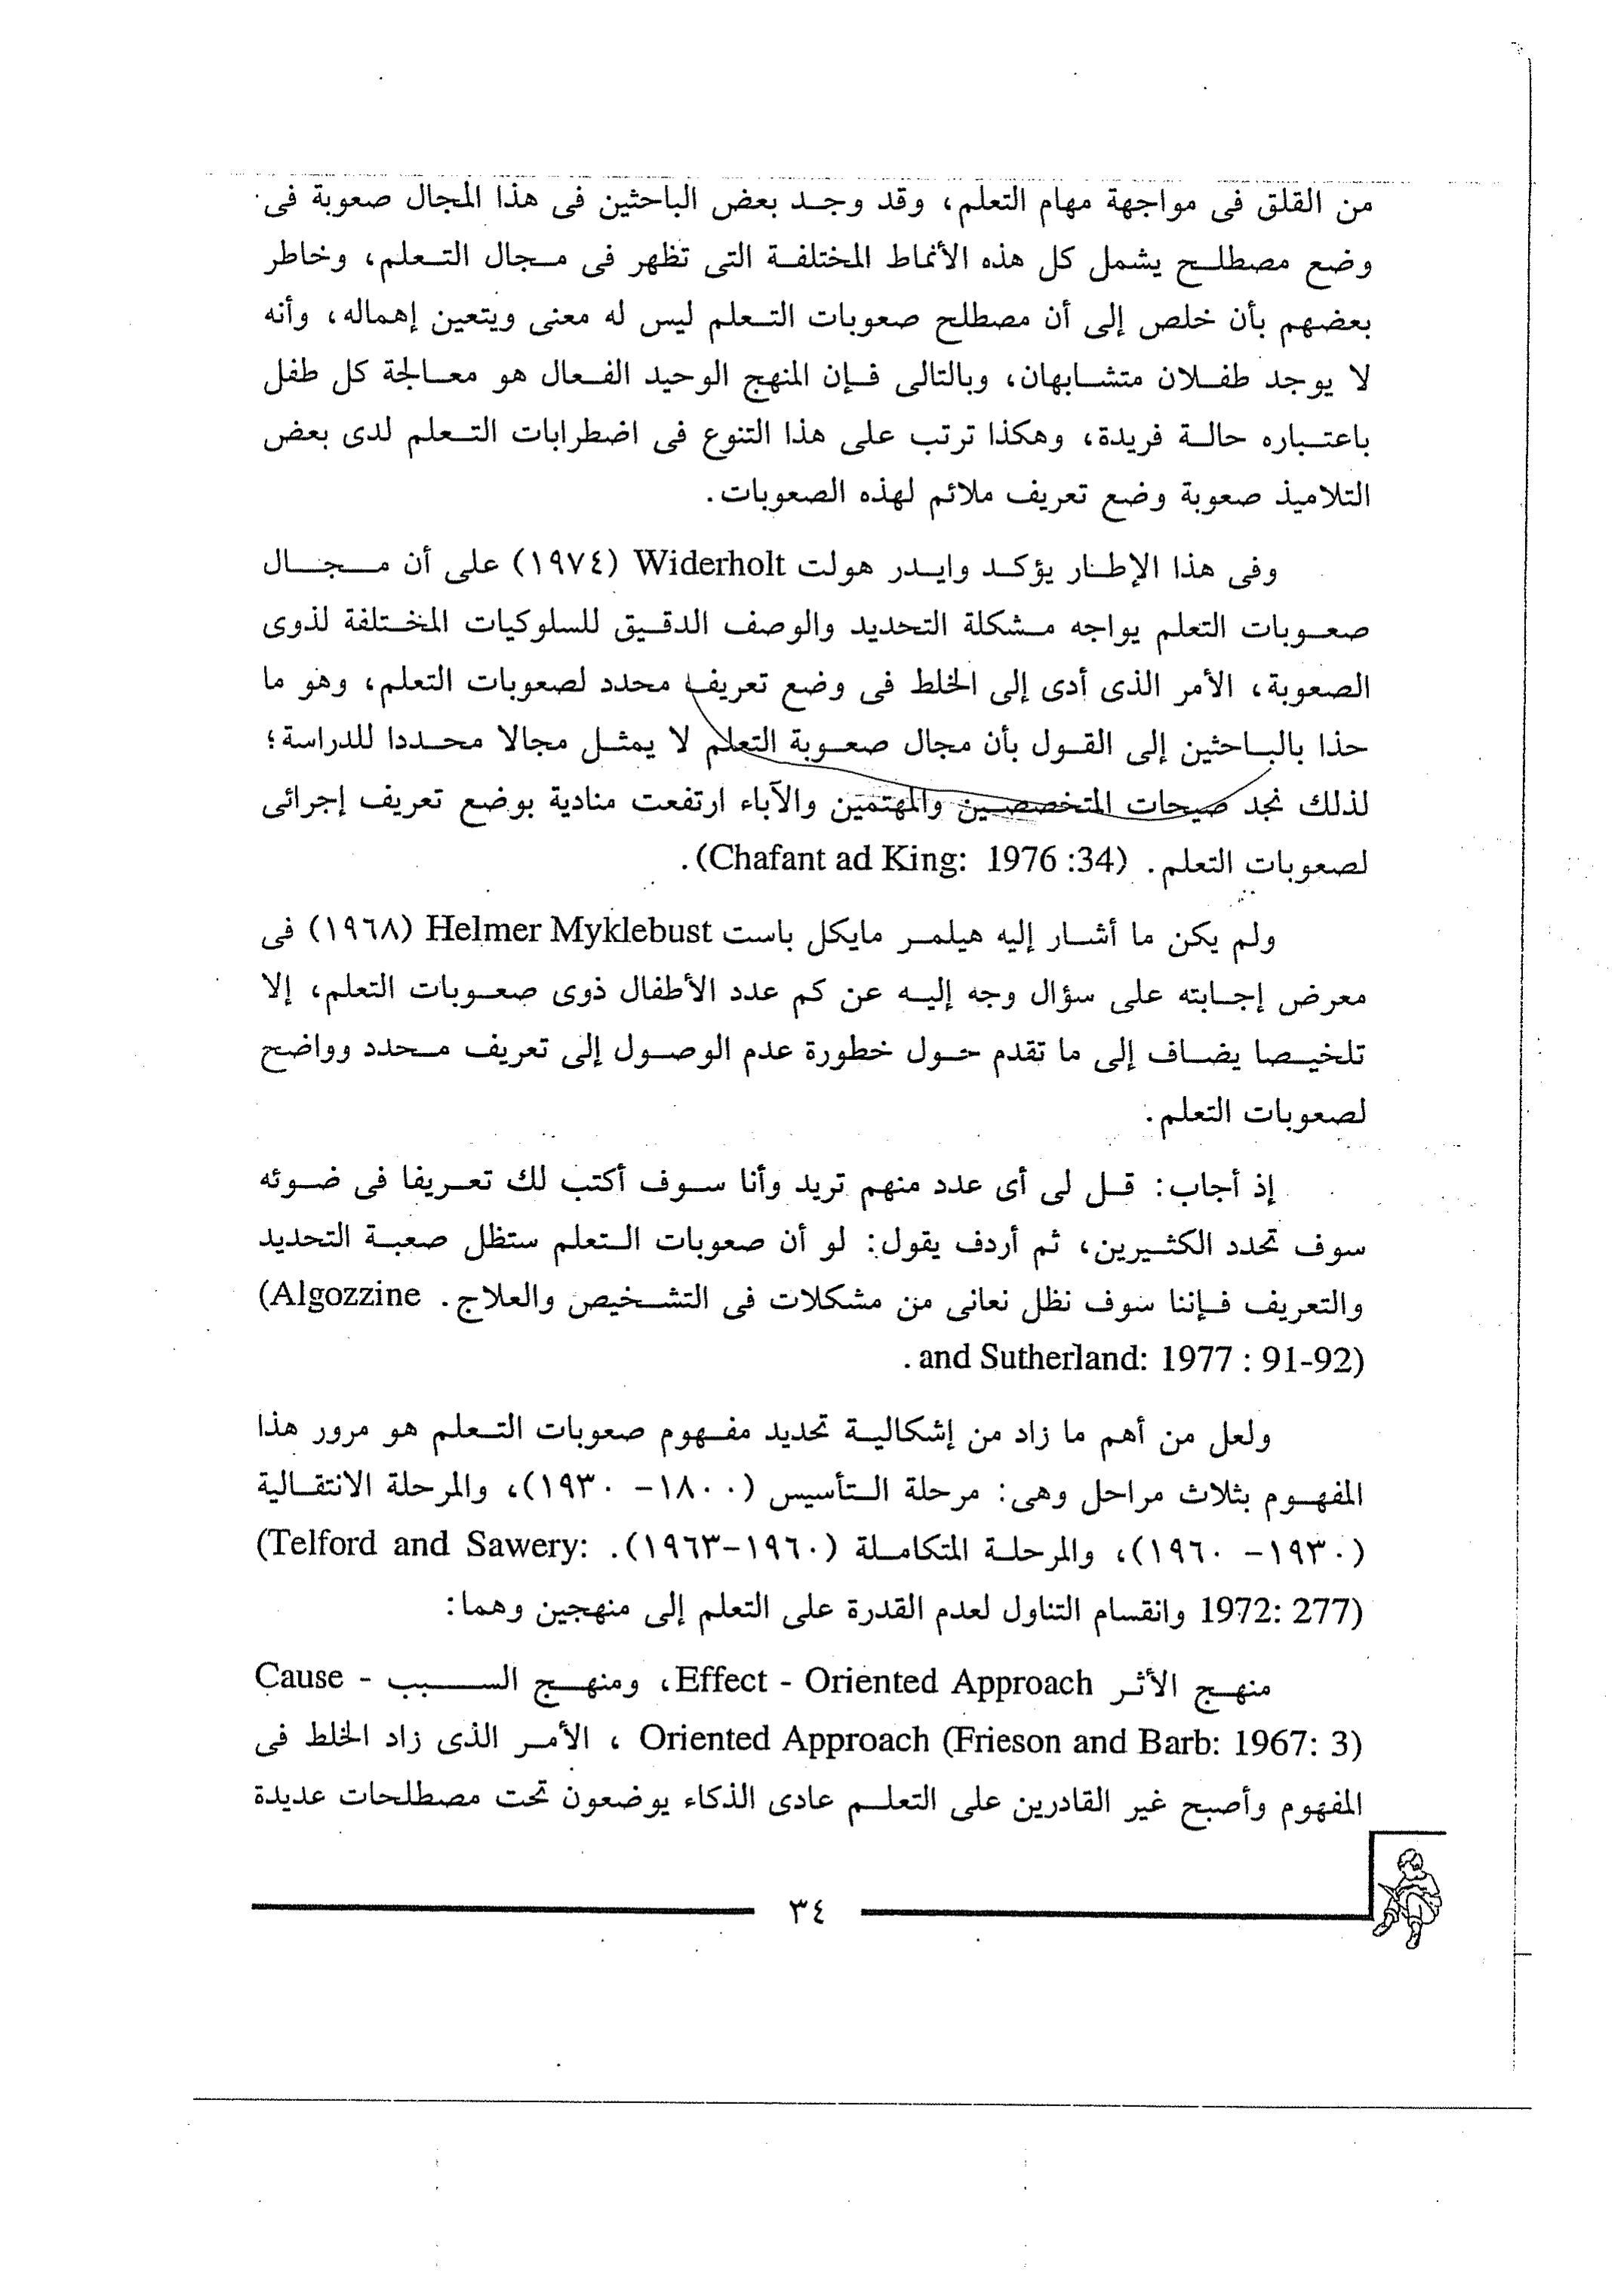 من القلق فى مواجهة مهام التعلم، وقد وجد بعض الباحثين فى هذا المجال صعوبة فى
وضع مصطلح يشمل كل هذه الأنماط المختلفة التى تظهر فى مجال التعلم، وخاطر
بعضهم بأن خلص إلى أن مصطلح صعوبات التعلم ليس له معنى ويتعين إهماله، وأنه
لا يوجد طفلان متشابهان، وبالتالى فإن المنهج الوحيد الفعال هو معالجة كل طفل
باعتباره حالة فريدة، وهكذا ترتب على هذا التنوع فى اضطرابات التعلم لدى بعض
التلاميذ صعوبة وضع تعريف ملائم لهذه الصعوبات.
وفى هذا الإطار يؤكد وايدر هولت Widerholt (١٩٧٤) على أن مجال
صعوبات التعلم يواجه مشكلة التحديد والوصف الدقيق للسلوكيات المختلفة لذوى
الصعوبة، الأمر الذى أدى إلى الخلط فى وضع تعريف محدد لصعوبات التعلم، وهو ما
حذا بالباحثين إلى القول بأن مجال صعوبة التعلم لا يمثل مجالا محددا للدراسة؛
لذلك نجد صيحات المتخصصين والمهتمين والآباء ارتفعت منادية بوضع تعريف إجرائى
لصعوبات التعلم. (Chafant ad King: 1976 :34).
ولم يكن ما أشار إليه هيلمر مايكل باست Helmer Myklebust (١٩٦٨) فى
معرض إجابته على سؤال وجه إليه عن كم عدد الأطفال ذوى صعوبات التعلم، إلا
تلخيصا يضاف إلى ما تقدم حول خطورة عدم الوصول إلى تعريف محدد وواضح
لصعوبات التعلم.
إذ أجاب: قل لى أى عدد منهم تريد وأنا سوف أكتب لك تعريفا فى ضوئه
سوف تحدد الكثيرين، ثم أردف يقول: لو أن صعوبات التعلم ستظل صعبة التحديد
والتعريف فإننا سوف نظل نعانى من مشكلات فى التشخيص والعلاج. (Algozzine
and Sutherland: 1977 : 91-92).
ولعل من أهم ما زاد من إشكالية تحديد مفهوم صعوبات التعلم هو مرور هذا
المفهوم بثلاث مراحل وهى: مرحلة التأسيس (١٨٠٠- ١٩٣٠)، والمرحلة الانتقالية
(١٩٣٠- ١٩٦٠)، والمرحلة المتكاملة (١٩٦٠-١٩٦٣). (Telford and Sawery:
1972: 277) وانقسام التناول لعدم القدرة على التعلم إلى منهجين وهما:
منهج الأثر Effect - Oriented Approach، ومنهج السبب Cause -
Oriented Approach (Frieson and Barb: 1967: 3) ، الأمر الذى زاد الخلط فى
المفهوم وأصبح غير القادرين على التعلم عادى الذكاء يوضعون تحت مصطلحات عديدة
٣٤